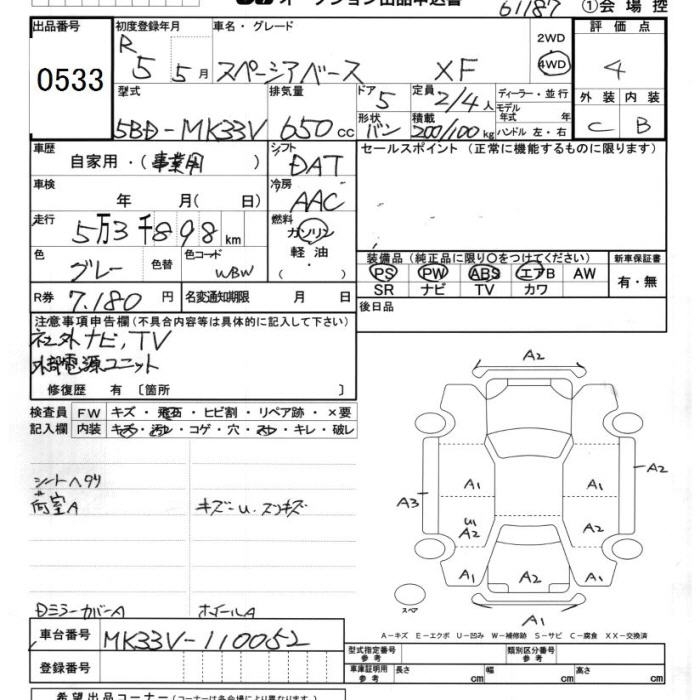 オークション出品申込書
61187 ①会場控
出品番号 初度登録年月 車名・グレード 2WD 評価点
0533 R5 5月 スペーシアベース XF 4WD 4
型式 排気量 ドア 5 定員 2/4人 ディーラー・並行 外装 内装
5BD-MK33V 650cc 形状 バン 積載 200/100kg モデル年式 年 ハンドル 左・右 C B
車歴 自家用・(事業用) シフト DAT セールスポイント (正常に機能するものに限ります)
車検 年 月( 日) 冷房 AAC
走行 5万3千898km 燃料 ガソリン
軽油
・( )
色 グレー 色替 色コード WBW 装備品(純正品に限り○をつけてください) 新車保証書
PS PW ABS エアB AW 有・無
SR ナビ TV カワ
R券 7,180円 名変通知期限 月 日 後日品
注意事項申告欄(不具合内容等は具体的に記入して下さい)
社外ナビ,TV
外部電源ユニット
修復歴 有 〔箇所 〕
検査員 FW キズ・飛石・ヒビ割・リペア跡・×要
記入欄 内装 キズ・汚れ・コゲ・穴・ヌレ・キレ・破レ
シートヘタリ
荷室A キズ・U.スリキズ
Dミラーカバー A ホイールA
A2
A1 A1 A2
A3
U1
A2 A2
A1 A2 A1
スペア
A1
A-キズ E-エクボ U-凹み W-補修跡 S-サビ C-腐食 XX-交換済
車台番号 MK33V-110052
登録番号
型式指定番号 参考 類別区分番号 参考
車庫証明用 参考 長さ cm 幅 cm 高さ cm
希望出品コーナー(コーナーは各会場により異なります。)